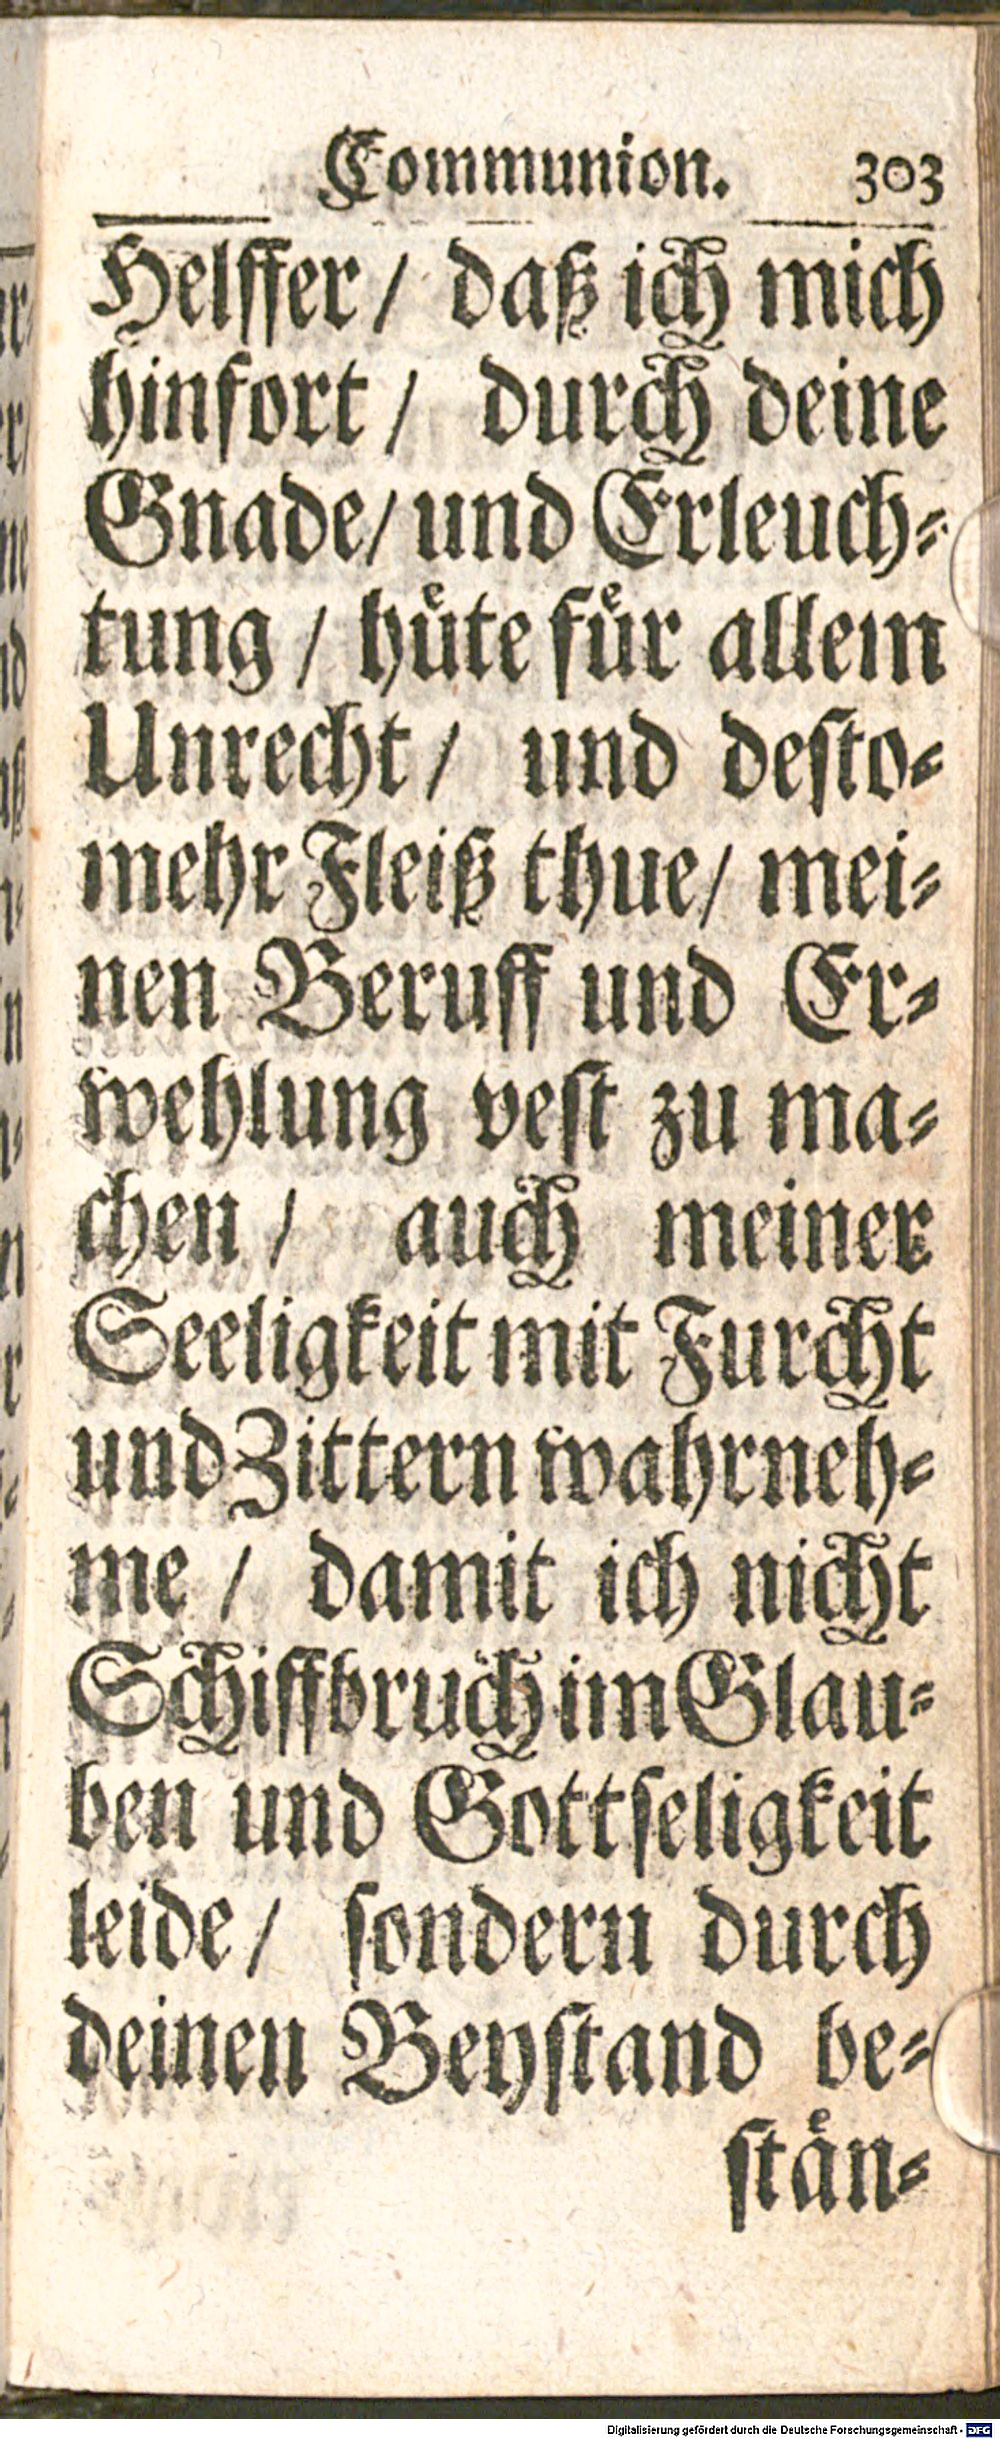 Communion. 303
Helffer / daß ich mich
hinfort / durch deine
Gnade / und Erleuch⸗
tung / huͤte fuͤr allem
Unrecht / und deſto⸗
mehr Fleiß thue / mei⸗
nen Beruff und Er⸗
wehlung veſt zu ma⸗
chen / auch meiner
Seeligkeit mit Furcht
und Zittern wahrneh⸗
me / damit ich nicht
Schiffbruch im Glau⸗
ben und Gottſeligkeit
leide / ſondern durch
deinen Beyſtand be⸗
ſtaͤn⸗
Digitalisierung gefördert durch die Deutsche Forschungsgemeinschaft - DFG